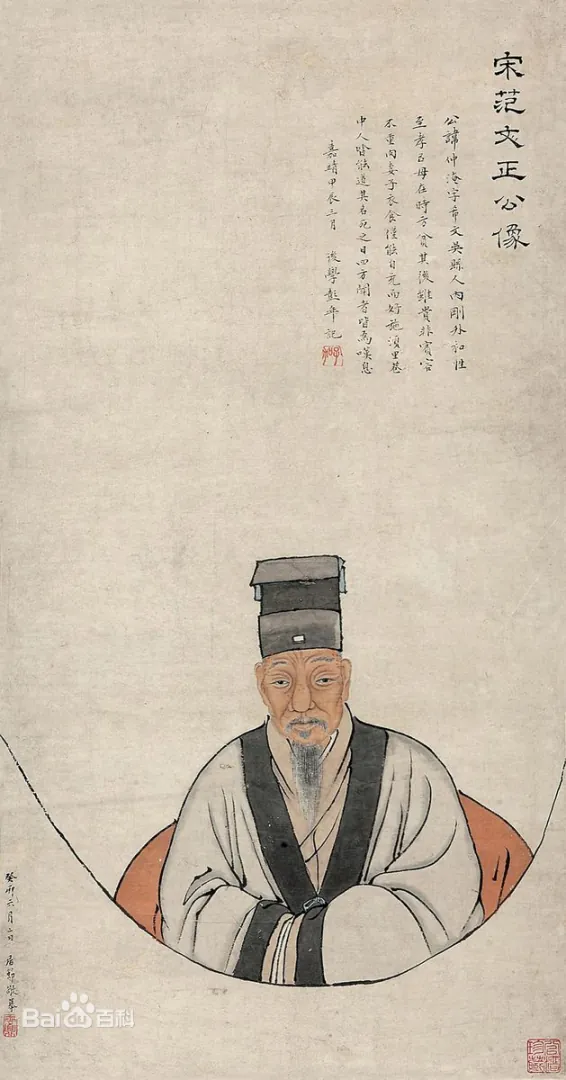 宋范文正公像
公諱仲淹字希文吳縣人内剛外和性
至孝以母在時方貧其後雖貴非賓客
不重肉妻子衣食僅能自充而好施里巷
中人皆能道其名死之日四方聞者皆為嘆息
嘉靖甲辰三月 後學彭年記
癸卯六月二日 居節敬摹
Bai百科